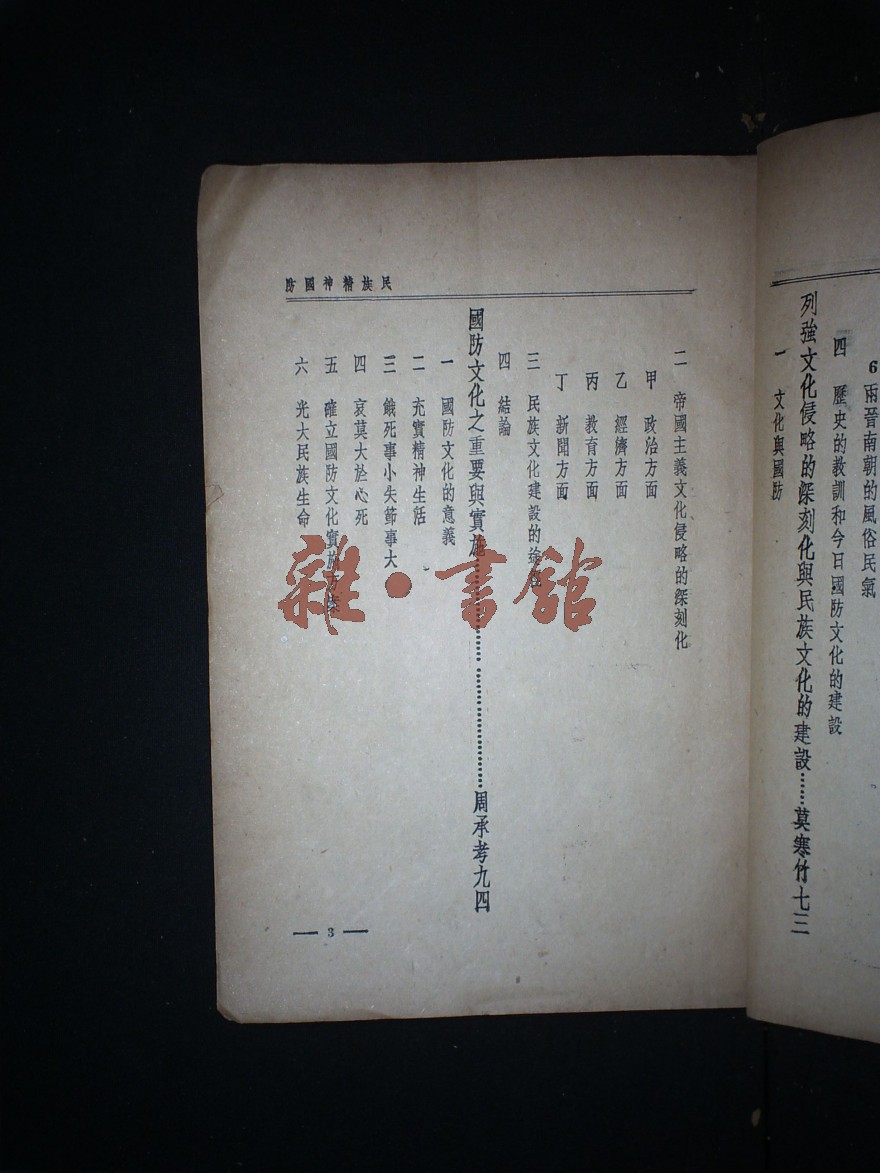 6 兩晉南朝的風俗民氣
四 歷史的教訓和今日國防文化的建設
列強文化侵略的深刻化與民族文化的建設……莫寒竹七三
一 文化與國防
民族精神國防
二 帝國主義文化侵略的深刻化
甲 政治方面
乙 經濟方面
丙 教育方面
丁 新聞方面
三 民族文化建設的途
四 結論
國防文化之重要與實施…………………………周承考九四
一 國防文化的意義
二 充實精神生活
三 餓死事小失節事大
四 哀莫大於心死
五 確立國防文化實施方案
六 光大民族生命
— 3 —
雜·書館